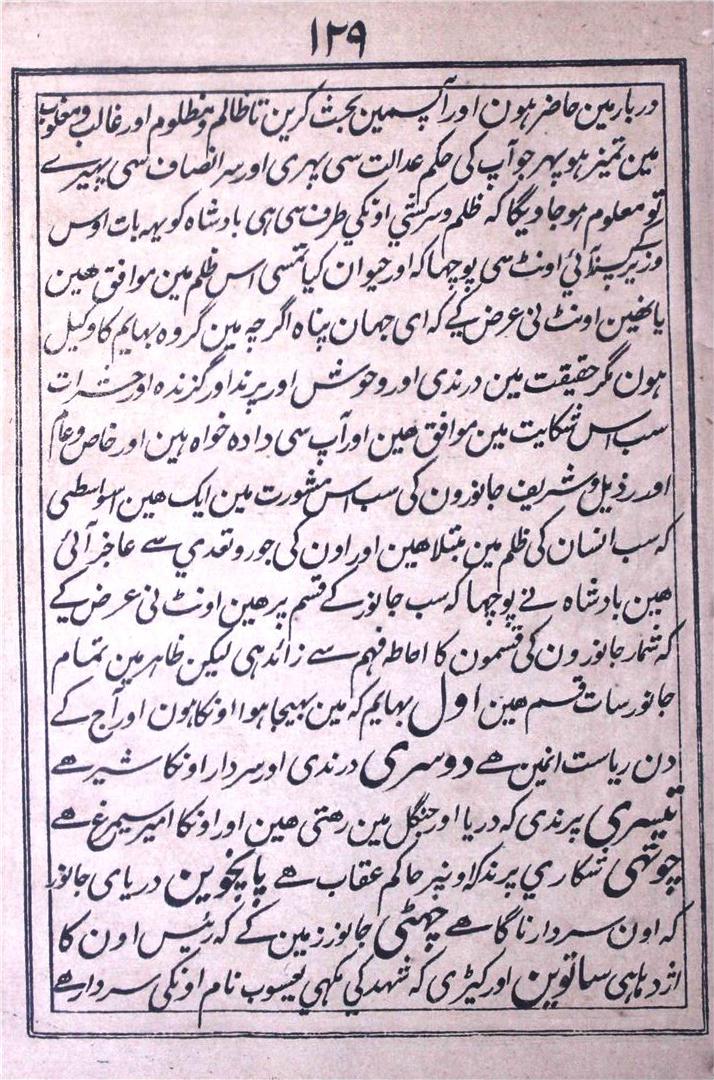 ۱۲۹
دربار مین حاضر ہون اور آپسمین بحث کرین تا ظالم و مظلوم اور غالب و مغلوب
مین تمیز ہو پہر جو آپ کی حکم عدالت سی پہری اور سر انصاف سی پہیرے
تو معلوم ہو جاویگا کہ ظلم و سرکشي اونکي طرف سی ہی بادشاہ کو یہہ بات اوس
وزیر کي پسند آئي اونٹ سی پوچہا کہ اور حیوان کیا تمسی اس ظلم مین موافق ھین
یا نھین اونٹ نی عرض کے کہ ای جہان پناہ اگرچہ مین گروہ بہایم کا وکیل
ہون مگر حقیقت مین درندی اور وحوش اور پرند اور گزندہ اور حشرات
سب اس شکایت مین موافق ھین اور آپ سی دادہ خواہ ہین اور خاص و عام
اور رذیل و شریف جانورون کی سب اس مشورت مین ایک ھین اسواسطی
کہ سب انسان کی ظلم مین مبتلا ھین اور اون کی جور و تعدي سے عاجز آئی
ھین بادشاہ نے پوچہا کہ سب جانور کے قسم پر ھین اونٹ نی عرض کے
کہ شمار جانورون کی قسمون کا احاطہ فہم سے زائد ہی لیکن ظاہر مین تمام
جانور سات قسم ھین اول بہایم کہ مین بہیجا ہوا اونکا ہون اور آج کے
دن ریاست انمین ھے دوسری درندی اور سردار اونکا شیر ھے
تیسری پرندی کہ دریا اور جنگل مین رھتی ھین اور اونکا امیر سیمرغ ھے
چوتھی شکاري پرند کہ اونپر حاکم عقاب ھے پانچوین دریای جانور
کہ اون سردار ناگا ھے چھٹی جانور زمین کے کہ رئیس اون کا
اژدہا ہی ساتوین اور کیڑی کہ شہد کي مکھي یعسوب نام اونکی سردار ھے